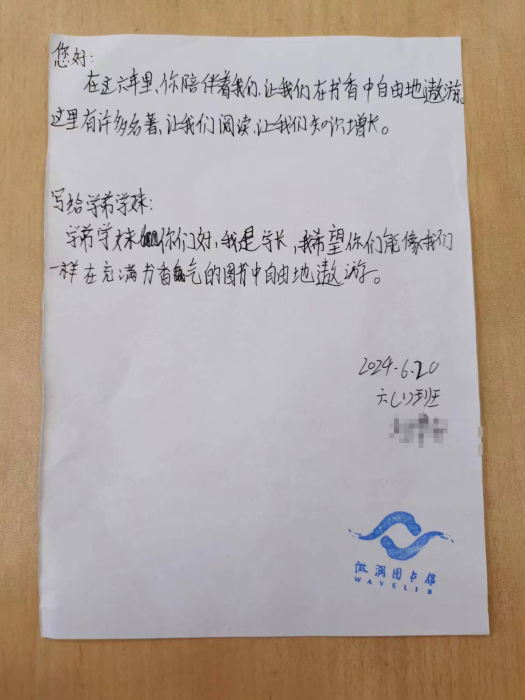 您好：
在这六年里、你陪伴着我们、让我们在书香中自由地遨游。
这里有许多名著、让我们阅读、让我们知识增长。
写给学弟学妹：
学弟学妹你们好，我是学长，我希望你们能像我们
一样在充满书香气的图书中自由地遨游。
2024.6.20
六(1)班
微澜图书馆
WAVELIB